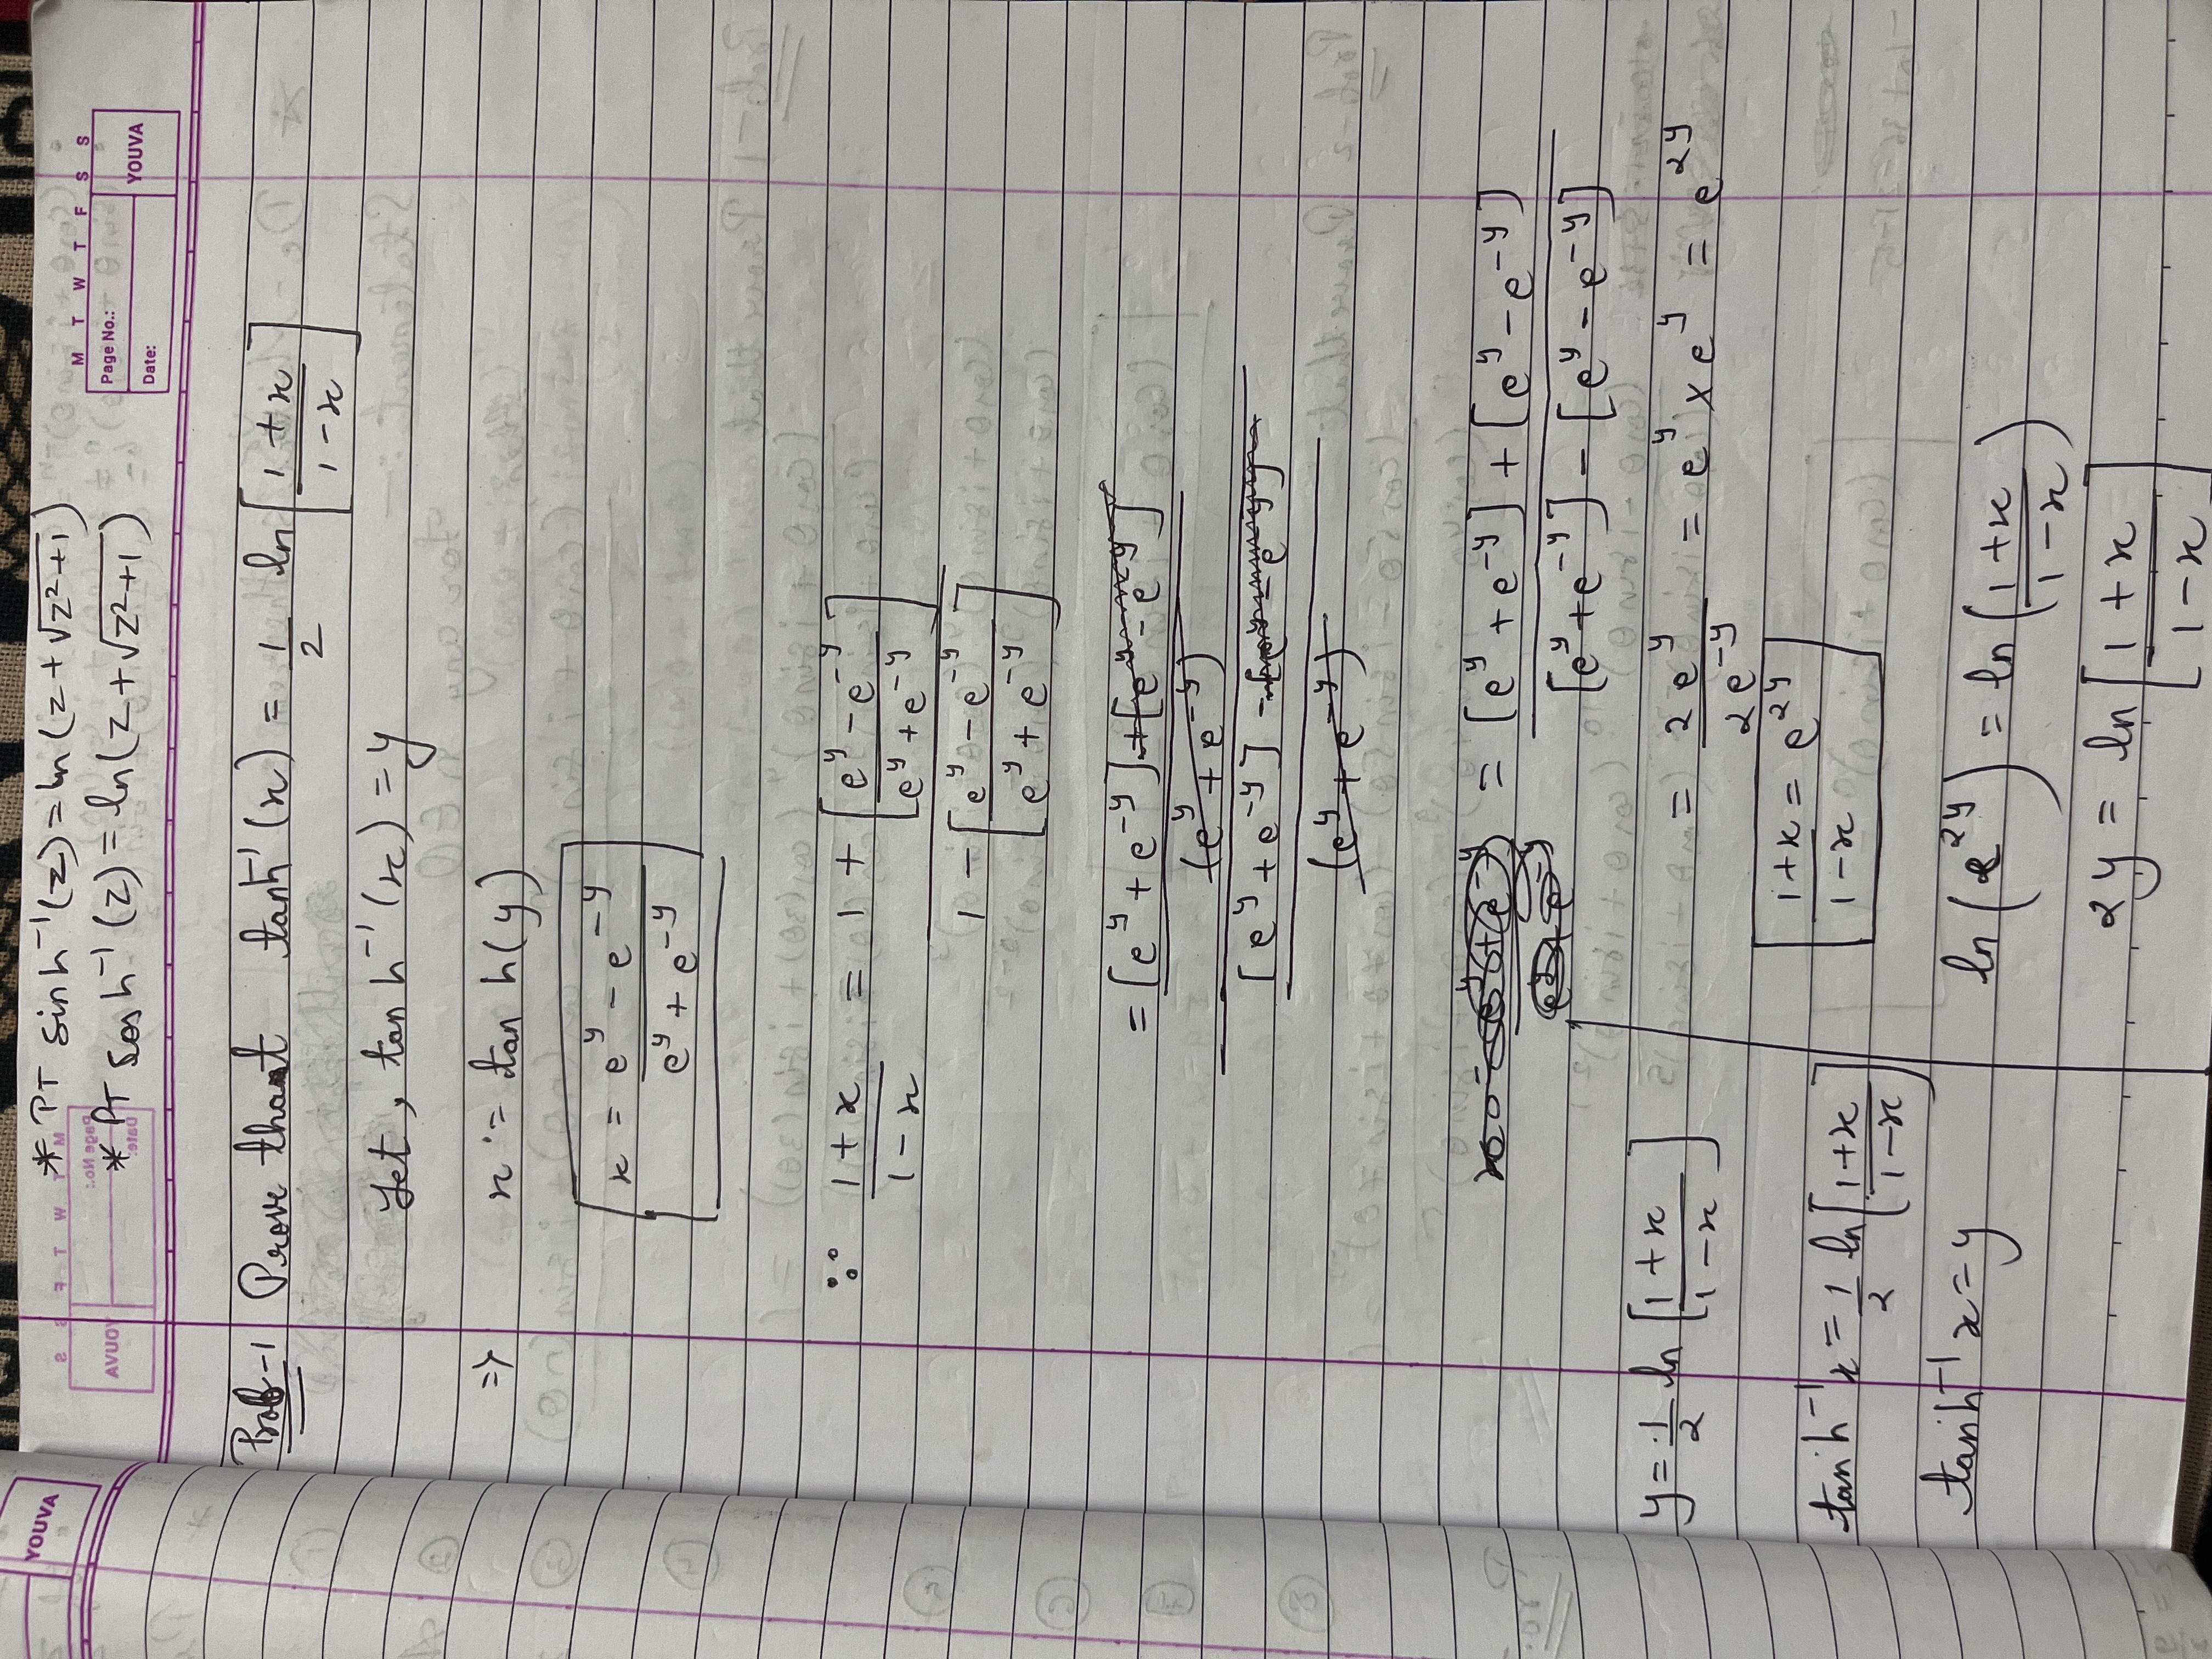 YOUVA
* PT sinh⁻¹(z) = ln(z + √z²+1)
* PT cosh⁻¹(z) = ln(z + √z²+1)
M T W T F S S
Page No.:
Date:
YOUVA
Prob-1 Prove that tanh⁻¹(x) = 1/2 ln[1+x / 1-x]
Let, tanh⁻¹(x) = y
=> x = tanh(y)
x = e^y - e^-y / e^y + e^-y
∵ 1+x / 1-x = 1 + [e^y - e^-y / e^y + e^-y] / 1 - [e^y - e^-y / e^y + e^-y]
= [e^y + e^-y] + [e^y - e^-y] / (e^y + e^-y)
[e^y + e^-y] - [e^y - e^-y] / (e^y + e^-y)
= [e^y + e^-y] + [e^y - e^-y] / [e^y + e^-y] - [e^y - e^-y]
= 2e^y / 2e^-y = e^y × e^y = e^2y
1+x / 1-x = e^2y
ln(e^2y) = ln(1+x / 1-x)
2y = ln[1+x / 1-x]
y = 1/2 ln[1+x / 1-x]
tanh⁻¹x = 1/2 ln[1+x / 1-x]
tanh⁻¹x = y